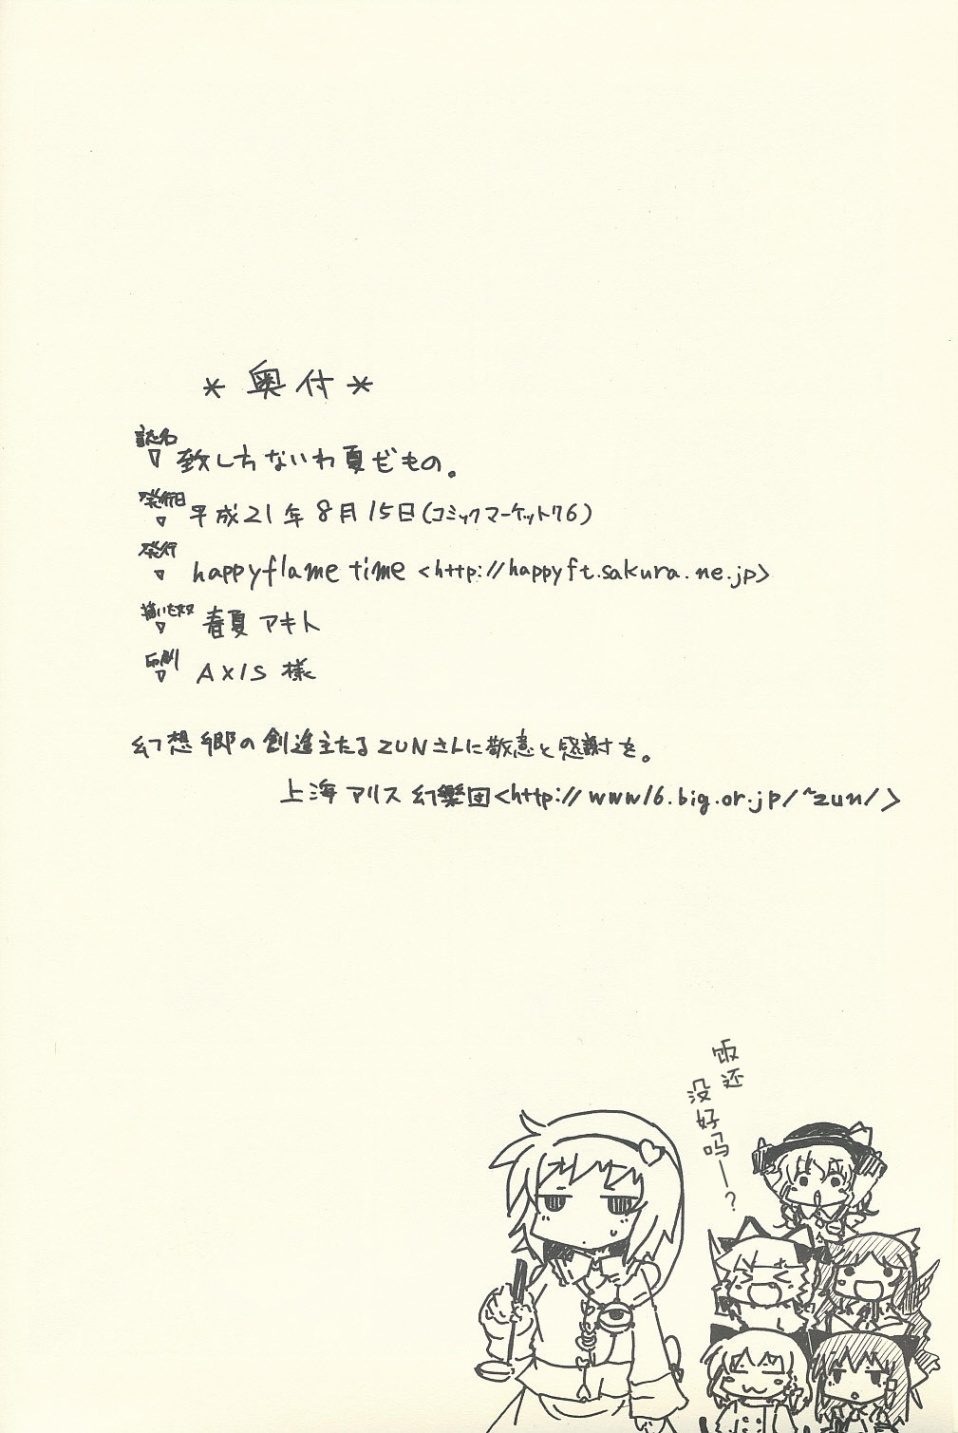 * 奥付 *
誌名
致し方ないわ夏だもの。
発行日
平成21年8月15日(コミックマーケット76)
発行
happyflame time <http://happyft.sakura.ne.jp>
描いた奴
春夏アキト
印刷
AXIS 様
幻想郷の創造主たるZUNさんに敬意と感謝を。
上海アリス幻樂団<http://www16.big.or.jp/~zun/>
饭还
没好吗—?